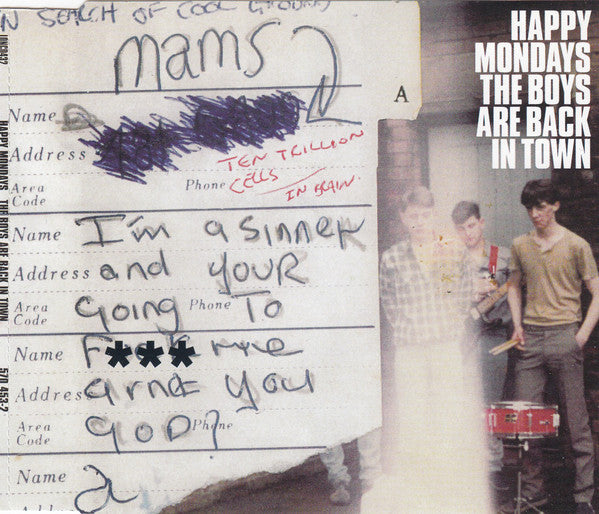 IN SEARCH OF COOL GROUND
mams
A
Name
Address
TEN TRILLION
Area
Code
Phone
CELLS
IN BRAIN.
Name I'm a sinner
Address and YOUR
Area
Code
Going Phone TO
Name F***me
Address arnt you
Area
Code
GOD? Phone
Name
a
HAPPY
MONDAYS
THE BOYS
ARE BACK
IN TOWN
HAPPY MONDAYS THE BOYS ARE BACK IN TOWN
570 453-2